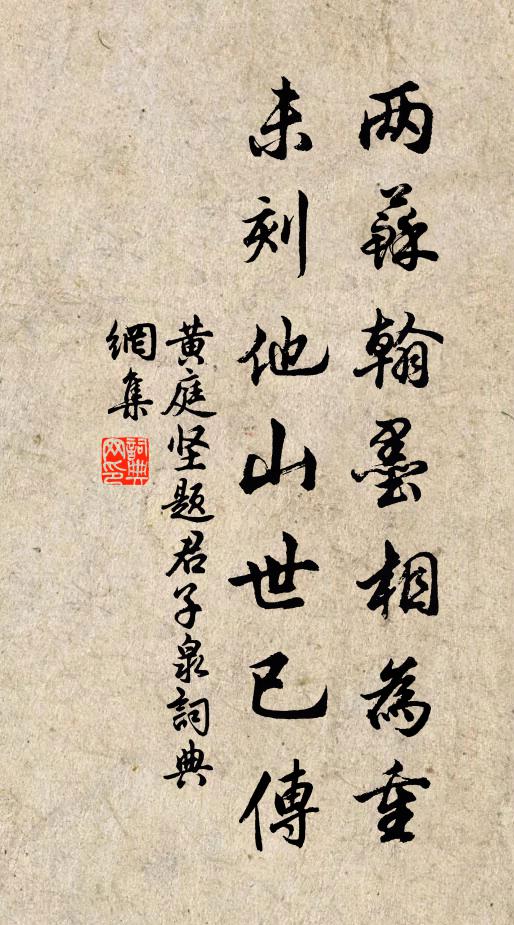 两蘇翰墨相為重
未刻他山世已傳
黄庭坚题君子泉詞典
網集
詞典
网印